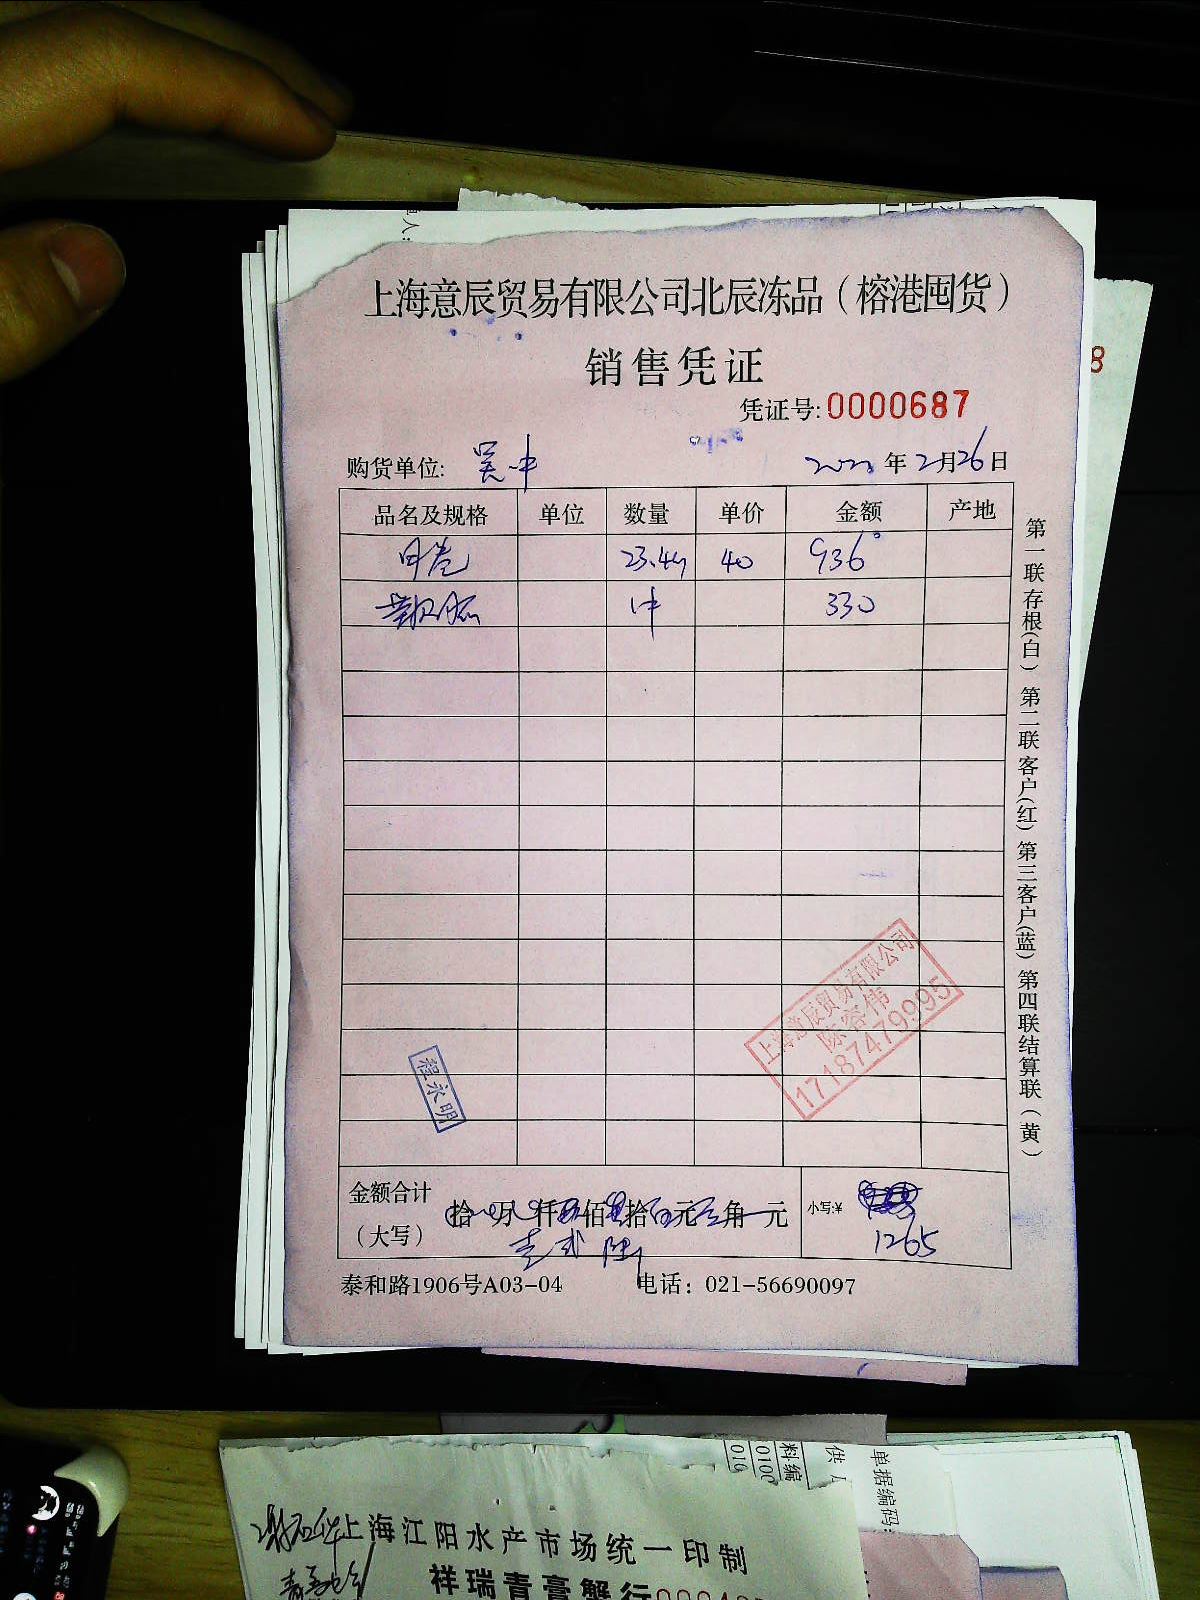 上海意辰贸易有限公司北辰冻品（榕港囤货）
销售凭证
凭证号:0000687
购货单位: 吴中 年2月26日
品名及规格 单位 数量 单价 金额 产地
23.4 40 936
1件 330
第一联存根(白) 第二联客户(红) 第三客户(蓝) 第四联结算联(黄)
上海意辰贸易有限公司
陈容伟
17187479995
程永明
金额合计
(大写) 拾 万 仟 佰 拾 元 角 元 小写:¥
1265
泰和路1906号A03-04 电话：021-56690097
8
料编
0100
010
供
单据编码:
上海江阳水产市场统一印制
祥瑞青膏蟹行